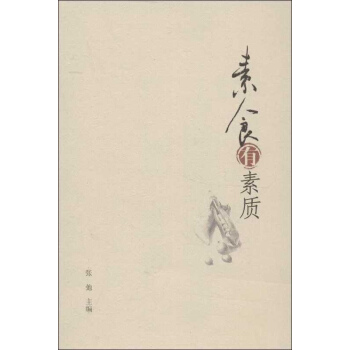 素食有素质
张勉 主编